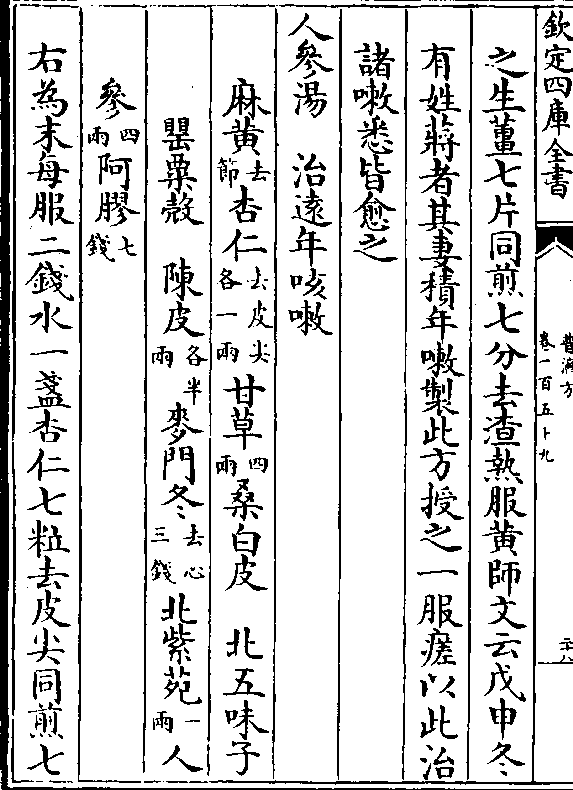 欽定四庫全書
普濟方
卷一百五十九
之生薑七片同煎七分去渣熱服黄師文云戊申冬
有姓蔣者其妻積年嗽製此方授之一服瘥以此治
諸嗽悉皆愈之
人參湯　治遠年咳嗽
麻黄去節杏仁去皮尖各一兩甘草四兩桑白皮　北五味子
罌粟殻　陳皮各半兩麥門冬去心三錢北紫菀一兩人
參四兩阿膠七錢
右為末每服二錢水一盞杏仁七粒去皮尖同煎七